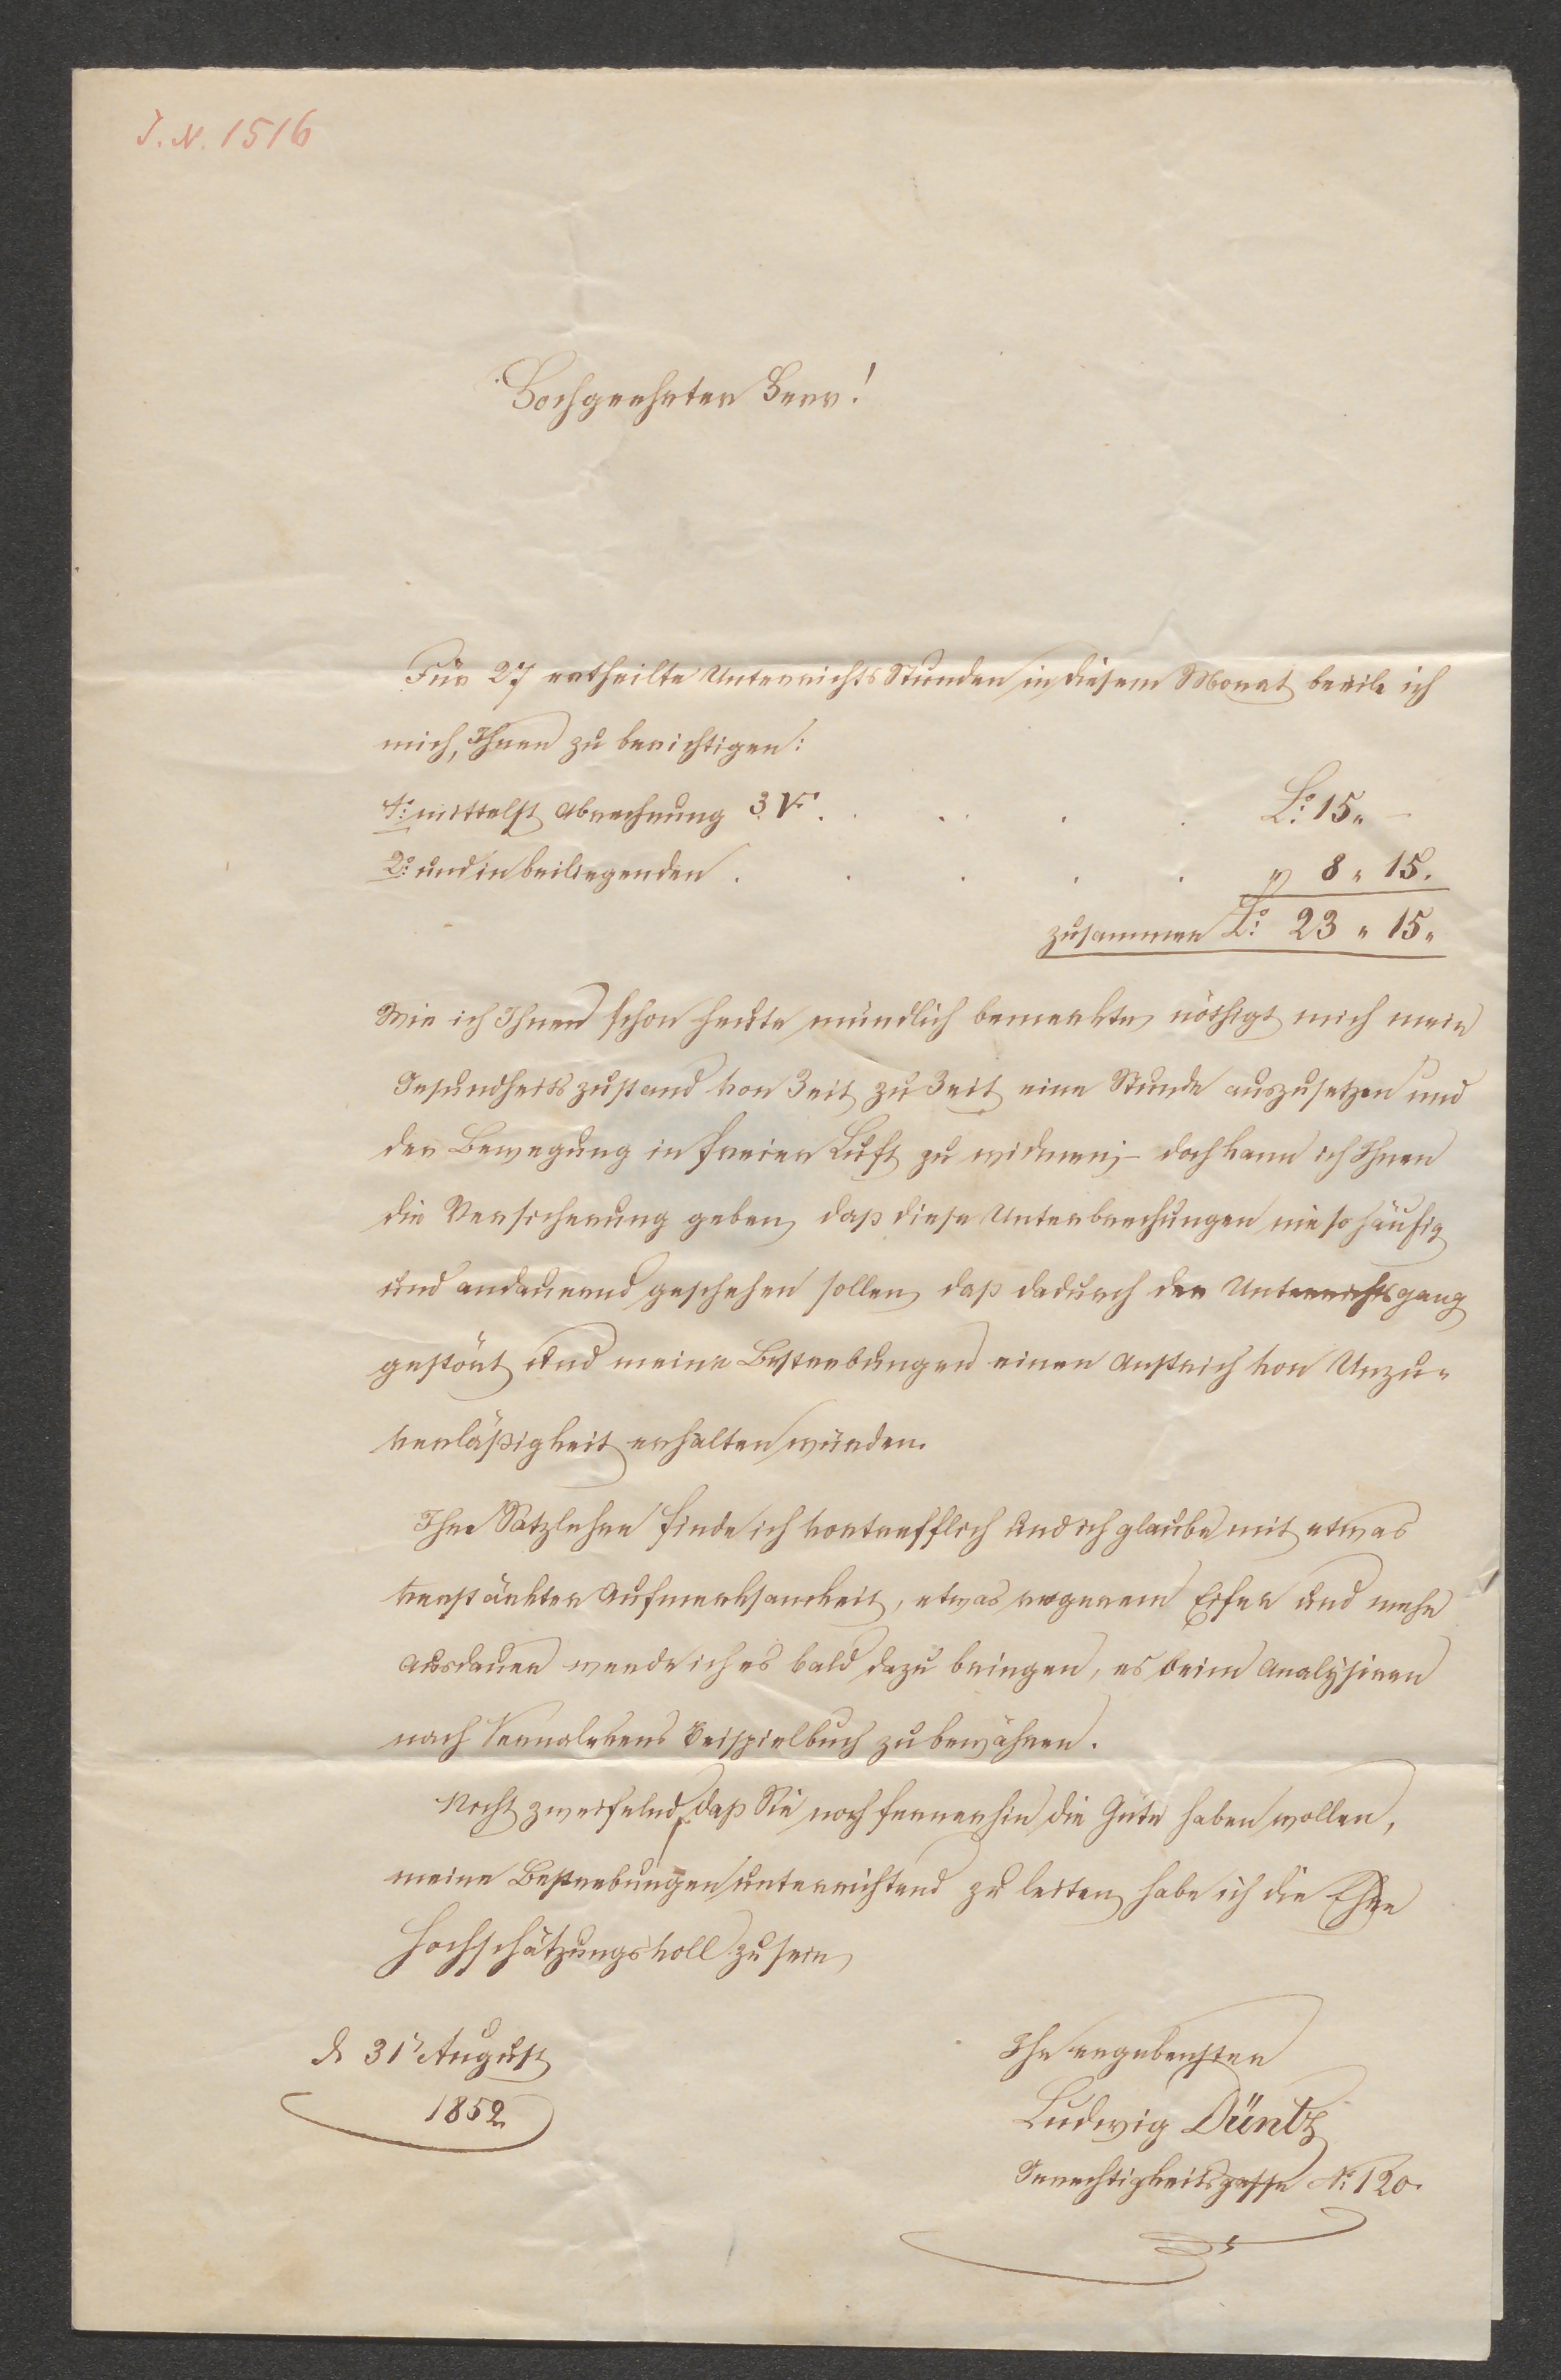 J. N. 1516
Hochgeehrter Herr!
Für 27 ertheilte Unterrichts Stunden in diesem Monat beeile ich
mich, Ihnen zu berichtigen:
1º. mittelst Abrechnung 3 V. . . . . . Lº. 15 „ –
2º. und in beiliegenden . . . . . „ 8 „ 15.
zusammen Lº. 23 „ 15 „
Wie ich Ihnen schon heute mündlich bemerkte, nöthigt mich mein
Gesundheitszustand von Zeit zu Zeit eine Stunde auszusetzen und
der Bewegung in freier Luft zu widmen; – doch kann ich Ihnen
die Versicherung geben, daß diese Unterbrechungen nie so häufig
und andauernd geschehen sollen, daß dadurch der Unterrichtsgang
gestört und meine Bestrebungen einen Anstrich von Unzu„
verläßigkeit erhalten würden.
Ihre Satzlehre finde ich vortrefflich und ich glaube mit etwas
verstärkter Aufmerksamkeit, etwas regerem Eifer und mehr
Ausdauer werde ich es bald dazu bringen, es beim Analysiren
nach Vernalekens Beispielbuch zu bewähren.
Nicht zweifelnd, daß Sie noch fernerhin die Güte haben wollen,
meine Bestrebungen unterrichtend zu leiten, habe ich die Ehre
hochschätzungsvoll zu sein,
d. 31t August
1852
Ihr ergebenster
Ludwig Düntz
Gerechtigkeitsgasse Nº. 120.